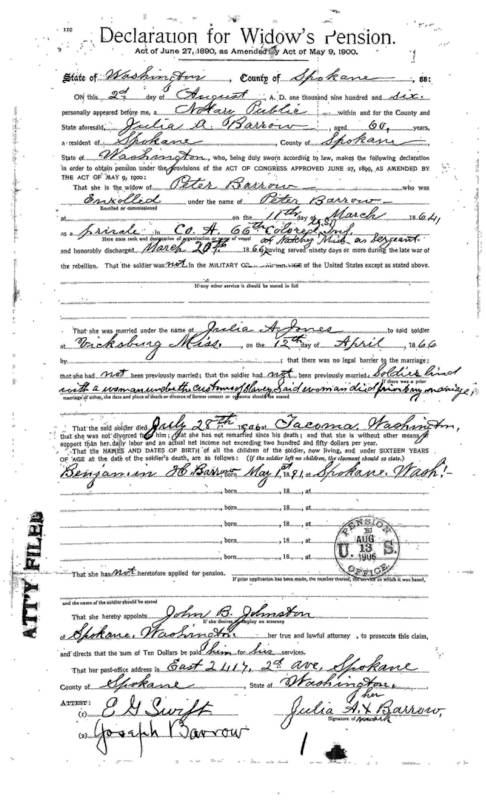 Declaration for Widow's Pension.
Act of June 27, 1890, as Amended by Act of May 9, 1900.
State of Washington, County of Spokane, ss:
ON this 2d day of August A. D. one thousand nine hundred and six
personally appeared before me, a Notary Public within and for the County and
State aforesaid, Julia A Barrow, aged 60, years,
a resident of Spokane, County of Spokane
State of Washington, who, being duly sworn according to law, makes the following declaration
in order to obtain pension under the provisions of the ACT OF CONGRESS APPROVED JUNE 27, 1890, AS AMENDED BY
THE ACT OF MAY 9, 1900:
That she is the widow of Peter Barrow who was
Enrolled under the name of Peter Barrow
Enrolled or commissioned
at on the 11th day of March 1864,
as a private in Co. A. 66th Colored Inf
Here state rank and designation of organization or name of vessel
at Natchez Miss as Sergeant
and honorably discharged March 20th 1866, having served ninety days or more during the late war of
the rebellion. That the soldier was not in the MILITARY OR of the United States except as stated above.
If any other service it should be stated in full
That she was married under the name of Julia A. Jones to said soldier
at Vicksburg Miss., on the 12th day of April, 1866
by ; that there was no legal barrier to the marriage;
that she had not been previously married; that the soldier had not been previously married. Soldier lived
If there was a prior
with a woman under the customs of Slavery. Said woman died prior to my marriage,
marriage of either, the date and place of death or divorce of former consort or consorts should be stated
That the said soldier died July 28th 1906 Tacoma, Washington,
that she was not divorced from him; that she has not remarried since his death; and that she is without other means of
support than her daily labor and an actual net income not exceeding two hundred and fifty dollars per year.
That the NAMES AND DATES OF BIRTH of all the children of the soldier, now living, and under SIXTEEN YEARS
OF AGE at the date of the soldier's death, are as follows: (If the soldier left no children, the claimant should so state.)
Benjamin H. Barrow May 1st 1891 Spokane, Wash!
, born , 18 , at
, born , 18 , at
, born , 18 , at
, born , 18 , at
, born , 18 , at
PENSION
AUG
13
1906
U. S.
OFFICE
ATT'Y FILED
That she has not heretofore applied for pension.
If prior application has been made, the number thereof, the service in which it was based,
and the name of the soldier should be stated
That she hereby appoints John B. Johnston
If she desires to employ an attorney
Spokane, Washington, her true and lawful attorney, to prosecute this claim,
and directs that the sum of Ten Dollars be paid him for his services.
That her post-office address is East 2417, 2d ave, Spokane
County of Spokane, State of Washington.
ATTEST: her
(1) E G Swift Julia A. X Barrow,
Signature of mark
(2) Joseph Barrow
1